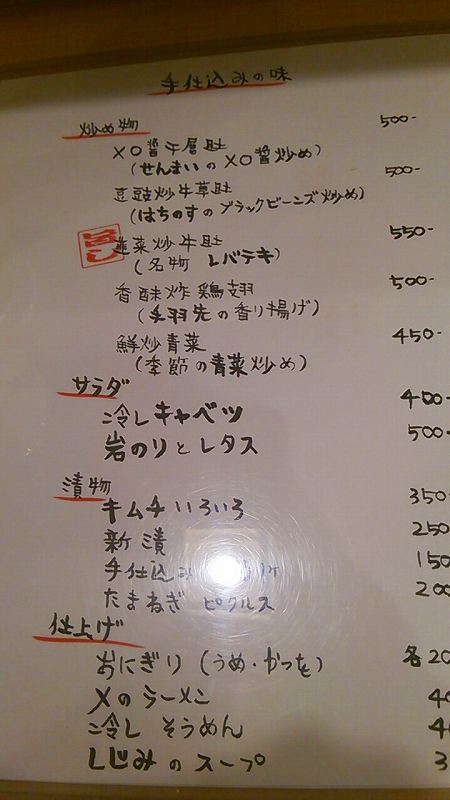 手仕込みの味
炒め物
XO醤牛層肚 500-
(せんまいのXO醤炒め)
豆豉炒牛草肚 500-
(はちのすのブラックビーンズ炒め)
菜炒牛肚 550-
(名物 レバテキ)
香酥炸鶏翅 500-
(手羽先の香り揚げ)
鮮炒青菜 450-
(季節の青菜炒め)
サラダ
冷しキャベツ 400-
岩のりとレタス 500-
漬物
キムチいろいろ 350
新漬 250
手仕込み 150
たまねぎ ピクルス 200
仕上げ
おにぎり (うめ・かつを) 各20
〆のラーメン
冷し そうめん
しじみのスープ